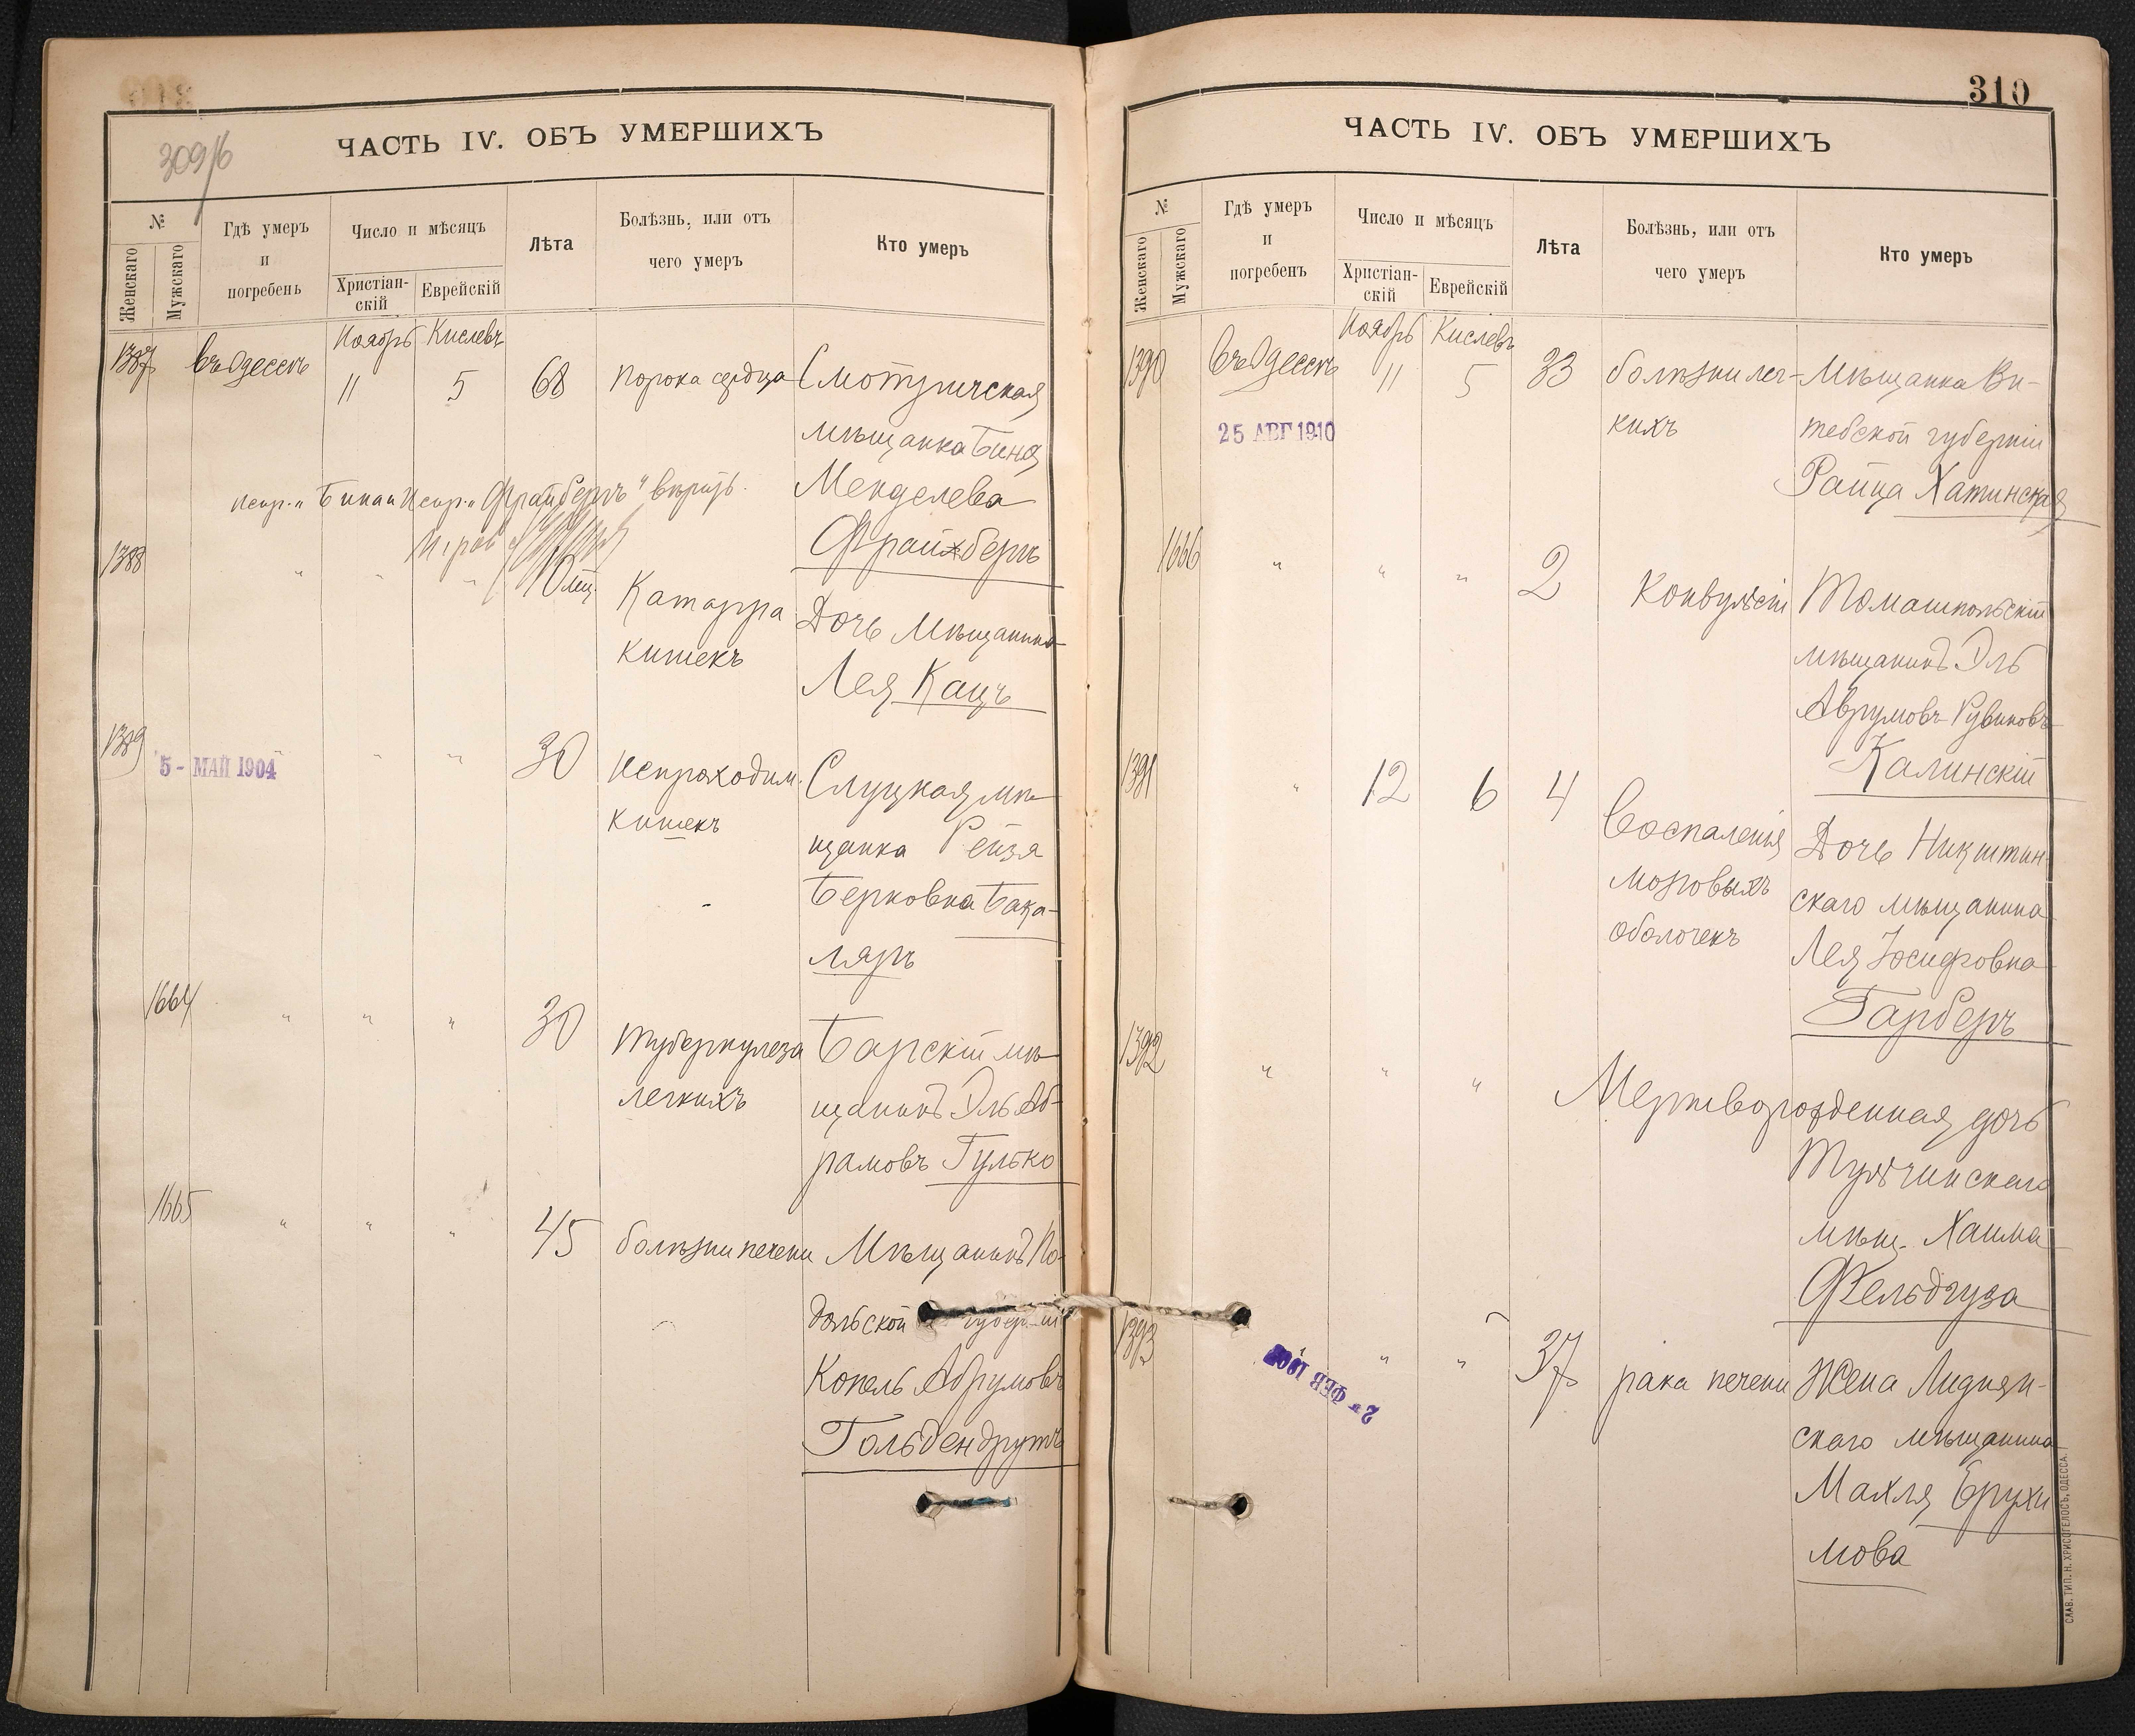 309/б
ЧАСТЬ IV. ОБЪ УМЕРШИХЪ
№
Женскаго
Мужскаго
Гдѣ умеръ
и
погребенъ
Число и мѣсяцъ
Христіан-
скій
Еврейскій
Лѣта
Болѣзнь, или отъ
чего умеръ
Кто умеръ
Ноябрь Кислевъ
1387 въ Одессѣ 11 5 68 порока сердца Смотричская
мѣщанка Биня
Менделева
Фрайхбергъ
испр. „Бина и испр. „Фрайбергъ" вѣрить.
1388 " " " 10 мц. Катарра
кишекъ
Дочь мѣщанина
Лея Кацъ
1389 " " " 30 Непроходим.
кишекъ
5 - МАЙ 1904
Слуцкая мѣ-
щанка Рейзя
Берковна Бака-
ляръ
1664 " " " 30 Туберкулеза
легкихъ
Барскій мѣ-
щанинъ Эль Аб-
рамовъ Гулько
1665 " " " 45 болѣзни печени Мѣщанинъ По-
дольской губерніи
Копель Абрумовъ
Гольдендрутъ
310
ЧАСТЬ IV. ОБЪ УМЕРШИХЪ
№
Женскаго
Мужскаго
Гдѣ умеръ
и
погребенъ
Число и мѣсяцъ
Христіан-
скій
Еврейскій
Лѣта
Болѣзнь, или отъ
чего умеръ
Кто умеръ
Ноябрь Кислевъ
1390 въ Одессѣ 11 5 33 болѣзни лег-
кихъ
25 АВГ 1910
Мѣщанка Ви-
тебской губерніи
Райца Хатинская
1666 " " " 2 Конвульсіи Томашпольскій
мѣщанинъ Эль
Аврумовъ-Рувиновъ
Калинскій
1391 " 12 6 4 Воспаленія
мозговыхъ
оболочекъ
Дочь Никштин-
скаго мѣщанина
Лея Іосифовна
Гарберъ
1392 " " " Мертворожденная дочь
Тульчинскаго
мѣщ. Хаима
Фельдгуза
1393 " " " 37 рака печени Жена Лиднян-
скаго мѣщанина
Махля Ерухи
мова
СЛАВ. ТИП. Н. ХРИСОГЕЛОСЪ, ОДЕССА.